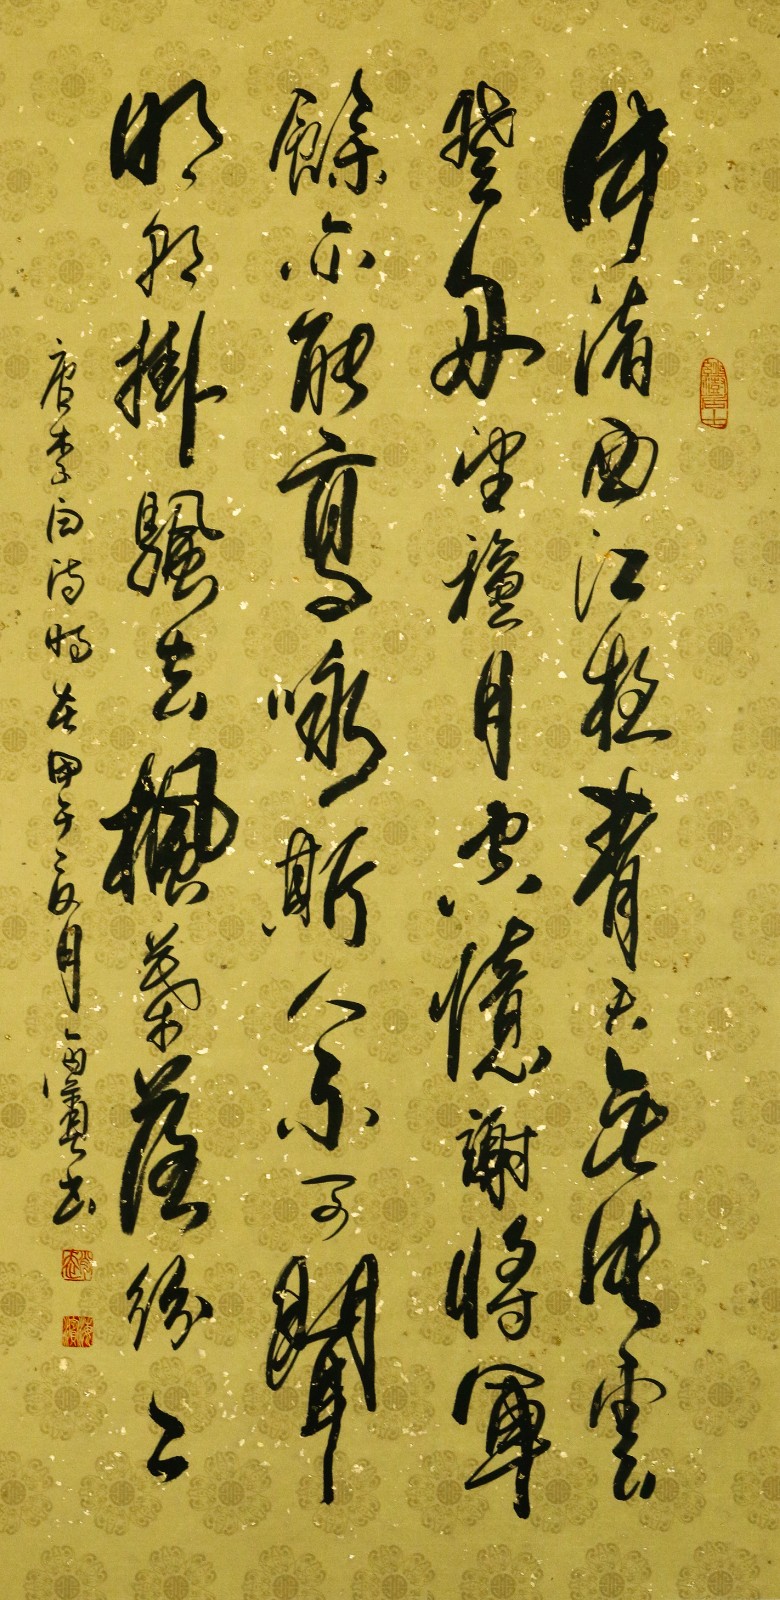 牛渚西江夜青天無片雲
登舟望穐月空憶謝將軍
餘亦能高咏斯人不可聞
明朝掛颿去楓葉落紛〻
唐李白詩時在甲午夏月書